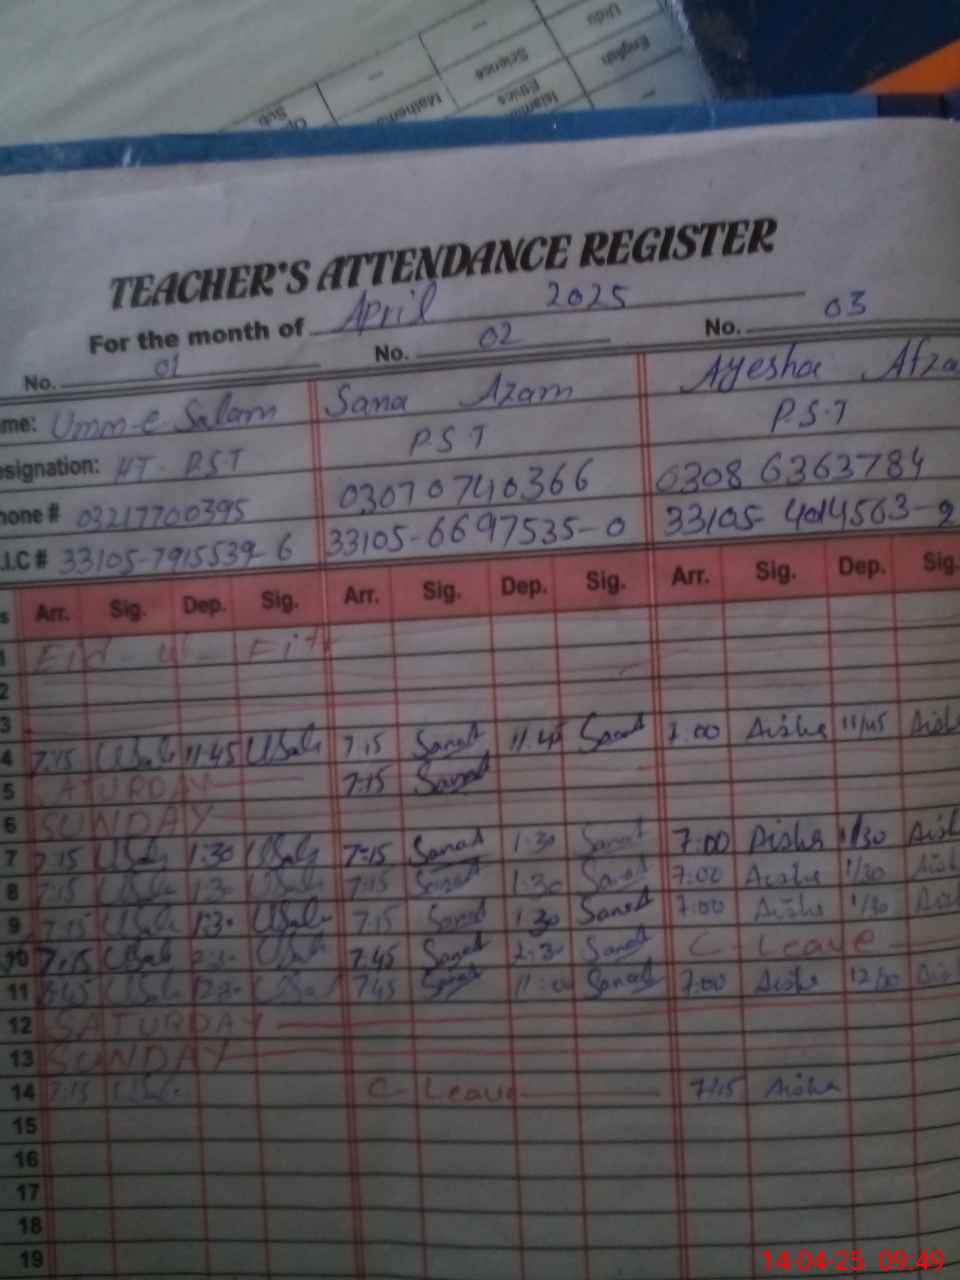 Urdu
English
—
Science
Ethics
Islami
—
Mathema
—
Op
Sub
TEACHER'S ATTENDANCE REGISTER
For the month of April 2025
No. 01 No. 02 No. 03
me: Umm-e-Salam Sana Azam Ayesha Afza
esignation: HT. PST P.S.T P.S.T
hone # 03217700395 03070740366 0308 6363784
.I.C # 33105-7915539-6 33105-6697535-0 33105-4014563-2
s Arr. Sig. Dep. Sig. Arr. Sig. Dep. Sig. Arr. Sig. Dep. Sig.
1 Eid - ul - Fitr
2
3
4 7:15 USala 11:45 USala 7:15 Sanad 11:45 Sanad 7:00 Aisha 11/45 Aish
5 SATURDAY 7:15 Sanad
6 SUNDAY
7 7:15 USala 1:30 USala 7:15 Sanad 1:30 Sanad 7:00 Aisha 1/30 Aish
8 7:15 USala 1:30 USala 7:15 Sanad 1:30 Sanad 7:00 Aisha 1/30 Aish
9 7:15 USala 1:30 USala 7:15 Sanad 1:30 Sanad 7:00 Aisha 1/30 Aish
10 7:15 USala 2:30 USala 7:45 Sanad 2:30 Sanad C - Leave
11 USala USala 7:45 Sanad 11:00 Sanad 7:00 Aisha Ais
12 SATURDAY
13 SUNDAY
14 7:15 USala C - Leave 7:15 Aisha
15
16
17
18
19
14-04-25 09:49